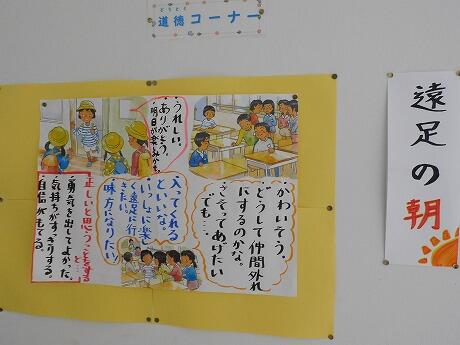 どうとく
道徳コーナー
遠足の朝
・かわいそう。
・どうして仲間外れ
にするのかな。
・さそってあげたい
でも・・・
・入ってくれる
といいな。
・いっしょに楽し
く遠足に行
きたい。
・味方になりたい！
・うれしい。
・ありがとう。
・明日が楽しみかも。
正しいと思うことをする
と・・・
・勇気を出してよかった。
・気持ちがすっきりする。
・自信がもてる。